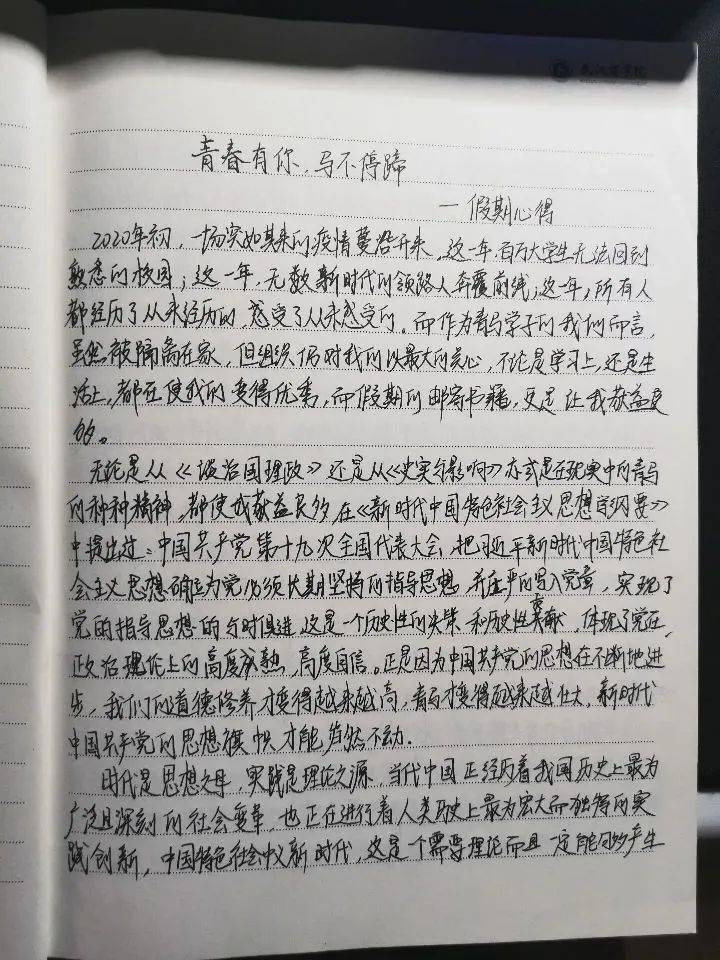 青春有你,马不停蹄
—假期心得
2020年初,一场突如其来的疫情蔓延开来,这一年,百万大学生无法回到
熟悉的校园;这一年,无数新时代的领路人奔覆前线;这一年,所有人
都经历了从未经历的,感受了从未感受的。而作为青马学子的我们而言,
虽然被隔离在家,但组织仍对我们以最大的关心,不论是学习上,还是生
活上,都在使我们变得优秀,而假期的邮寄书籍,更是让我获益良
多。
无论是从《谈治国理政》还是从《史实与影响》亦或是在现实中的青马
的种种精神,都使我获益良多,在《新时代中国特色社会主义思想学习纲要》
中提出过:中国共产党第十九次全国代表大会,把习近平新时代中国特色社
会主义思想确立为党必须长期坚持的指导思想,并庄严的写入党章,实现了
党的指导思想的与时俱进,这是一个历史性的决策和历史性贡献,体现了党在
政治理论上的高度成熟,高度自信。正是因为中国共产党的思想在不断地进
步,我们的道德修养才变得越来越高,青马才变得越来越壮大,新时代
中国共产党的思想旗帜才能岿然不动.
时代是思想之母,实践是理论之源.当代中国正经历着我国历史上最为
广泛且深刻的社会变革,也正在进行着人类历史上最为宏大而独特的实
践创新,中国特色社会主义新时代,这是个需要理论而且一定能够产生